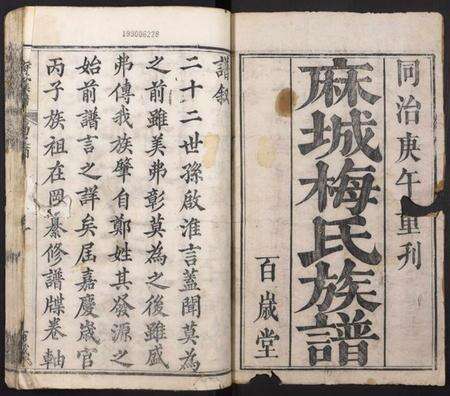 同治庚午重刊
麻城梅氏族譜
百歲堂
譜叙
二十二世孫啟淮言蓋聞莫為
之前雖美弗彰莫為之後雖盛
弗傳我族肇自鄭姓其發源之
始前譜言之詳矣屆嘉慶歲官
丙子族祖在岡纂修譜牒卷軸